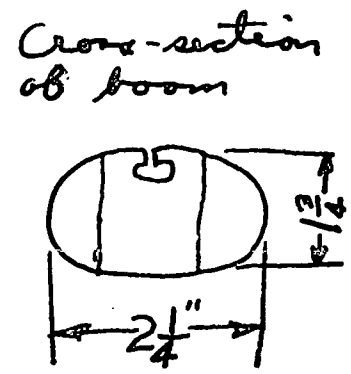 Cross-section
of boom
1 3/4
2 1/4"